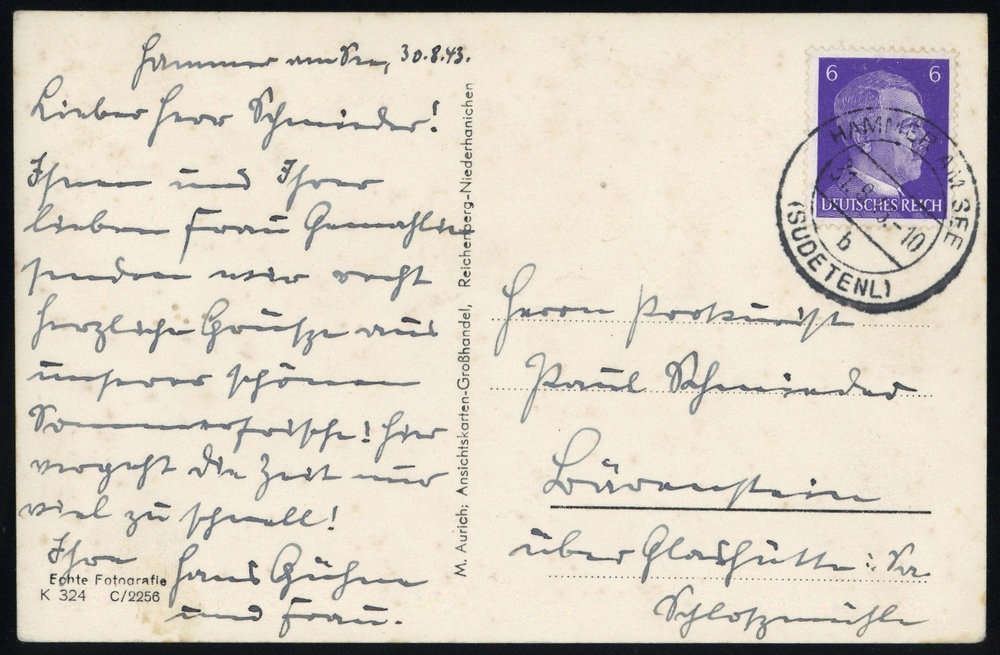 Hammer am See, 30.8.43.
Lieber Herr Schmieder!
Ihnen und Ihrer
lieben Frau Gemahlin
senden wir recht
herzliche Grüsze aus
unserer schönen
Sommerfrische! Hier
vergeht die Zeit nur
viel zu schnell!
Ihre Hans Gühne
und Frau.
Echte Fotografie
K 324 C/2256
M. Aurich; Ansichtskarten-Großhandel, Reichenberg-Niederhanichen
6 6
DEUTSCHES REICH
HAMMER AM SEE
-10
b
(SUDETENL)
Herrn Prokurist
Paul Schmieder
Bärenstein
über Glashütte i. Sa
Schloszmühle